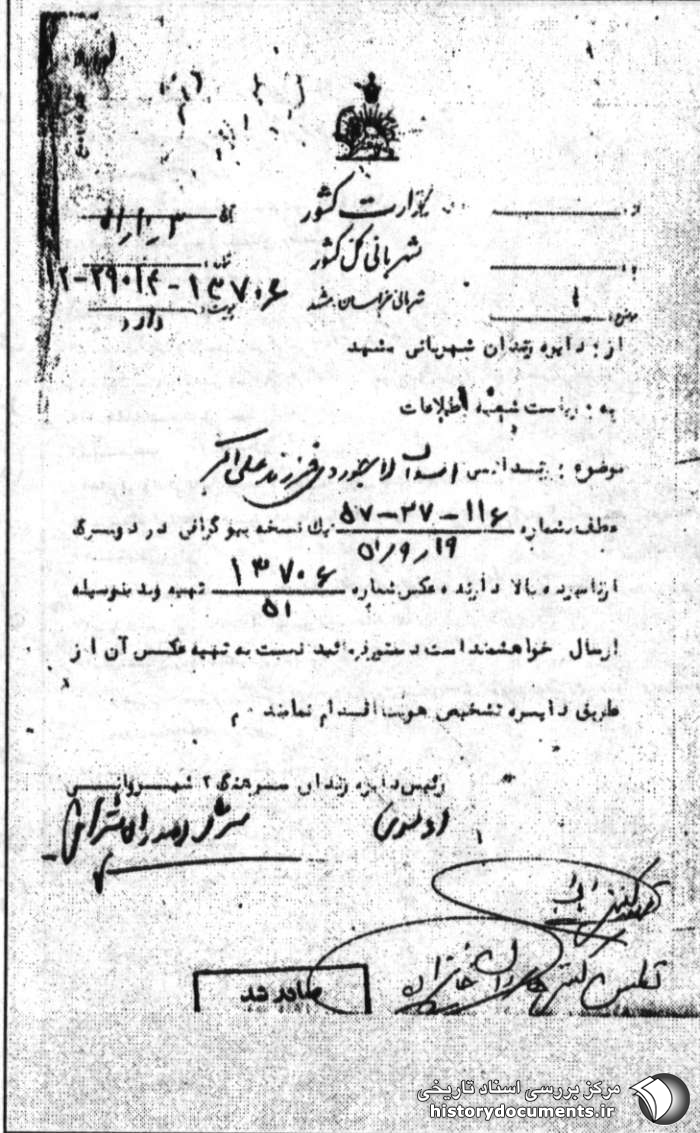 از :
وزارت کشور
تاریخ ۵۱٫۱۰٫۳
به :
شهربانی کل کشور
شماره : ۱۳۷۰۶-۲۹۰۱۴-۱۲
موضوع :
شهربانی خراسان مشهد
پیوست : دارد
از : دایره زندان شهربانی مشهد
به : ریاست شعبه اطلاعات
موضوع : اسدالله لاجوردی فرزند علی اکبر
عطف بشماره ۱۱۶-۲۷-۵۷ یک نسخه بیوگرافی در دوسری
۵۱٫۹٫۱۹
از نامبرده بالا دارنده عکس شماره ۱۳۷۰۶ تهیه و بدینوسیله
۵۱
ارسال خواهشمند است دستور فرمائید نسبت به تهیه عکس آن از
طریق دایره تشخیص هویت اقدام نمایند م
رئیس دایره زندان سرهنگ ۲ شیروانی
صادر شد
مرکز بررسی اسناد تاریخی
historydocuments.ir